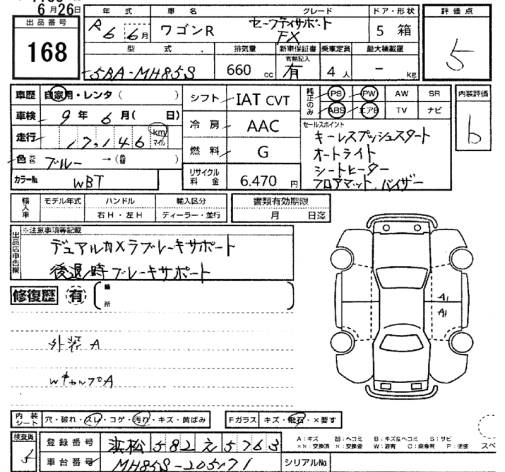 6月26日
出品番号 168
年式 R6 6月 車名 ワゴンR グレード セーフティサポート FX ドア・形状 5 箱 評価点 5
型式 5BA-MH85S 排気量 660cc 新車保証書 有無記入 有 乗車定員 4人 最大積載量 - kg
車歴 自家用・レンタ( ) シフト IAT CVT 純正のみ PS PW AW SR 内装評価 b
車検 9年6月( 日) 冷房 AAC ABS エアB TV ナビ
走行 17,146 km マイル 燃料 G セールスポイント
キーレスプッシュスタート
オートライト
シートヒーター
フロアマット、バイザー
色 ブルー → ( )
カラーNo WBT リサイクル料金 6.470円
輸入車 モデル年式 ハンドル 右H・左H 輸入区分 ディーラー・並行 書類有効期限 月 日迄
出品店申告欄 ※注意事項等記載
デュアルカメラブレーキサポート
後退時ブレーキサポート
修復歴 有 ( 箇所
A1
A1
外装A
内装シート 穴・破れ・スレ・コゲ・汚れ・キズ・黄ばみ Fガラス キズ・飛石・×要す
検査員 登録番号 浜松 582 え 5763
A:キズ B:ヘコミ B:キズ&ヘコミ S:サビ
車台番号 MH85S-205171 シリアルNo